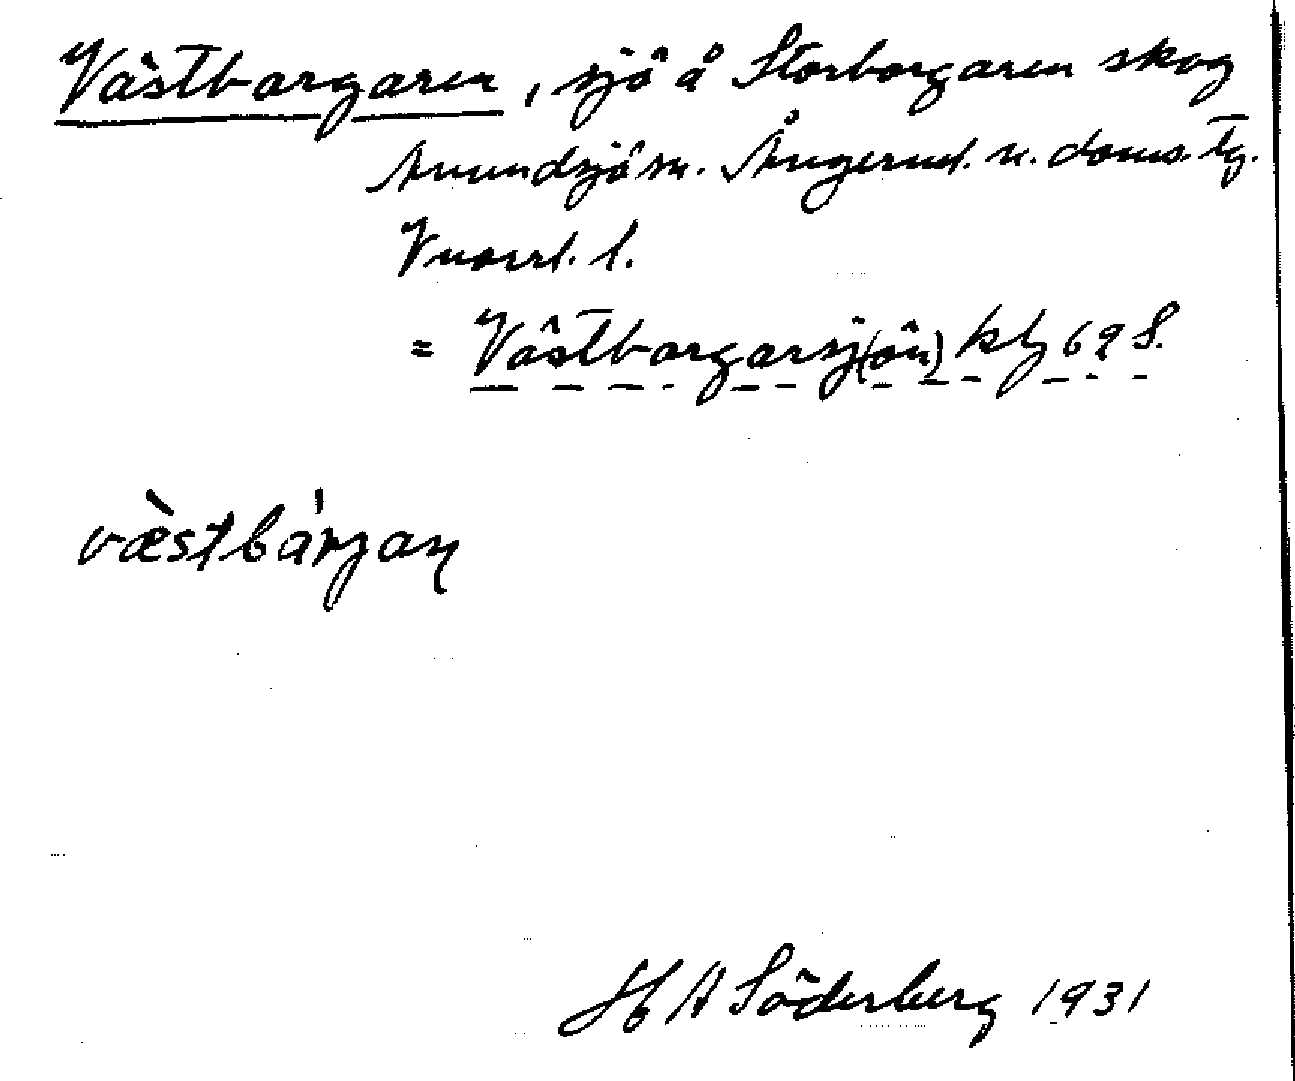 Västborgaren, sjö å Storborgaren skog
Anundsjö sn. Ångerml. n. doms. tg.
Vnorrl. l.
= Västborgarsj(ön) kbl 69 S.
væ̀stbárjaṇ
H A Söderberg 1931